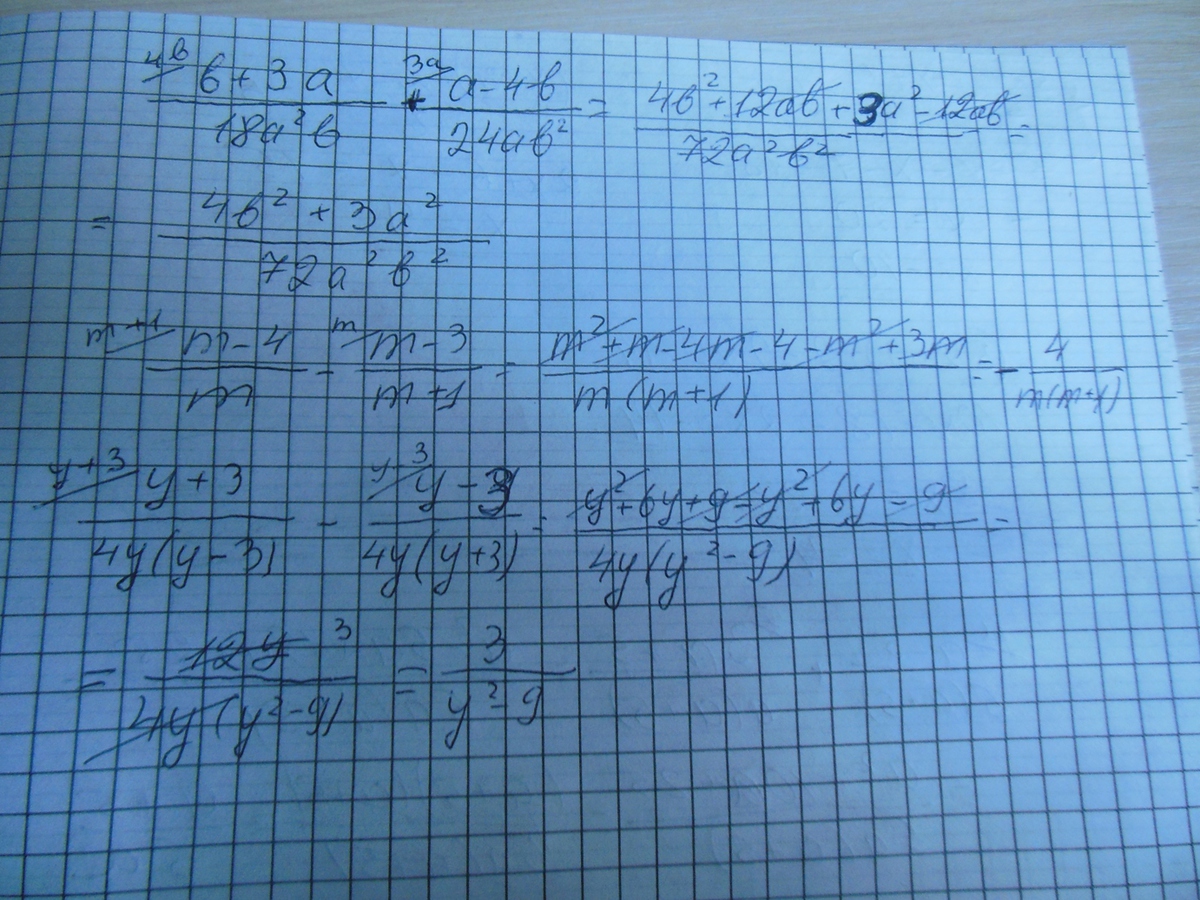 4в/ (в + 3a)/(18a²в) + 3a/ (a - 4в)/(24aв²) = (4в² + 12aв + 3a² - 12aв)/(72a²в²) =
= (4в² + 3a²)/(72a²в²)
m+1/ (m - 4)/m - m/ (m - 3)/(m + 1) = (m² + m - 4m - 4 - m² + 3m)/(m(m+1)) = - 4/(m(m+1))
y+3/ (y + 3)/(4y(y - 3)) - y-3/ (y - 3)/(4y(y+3)) = (y² + 6y + 9 - y² + 6y - 9)/(4y(y² - 9)) =
= 12y 3/(4y(y² - 9)) = 3/(y² - 9)